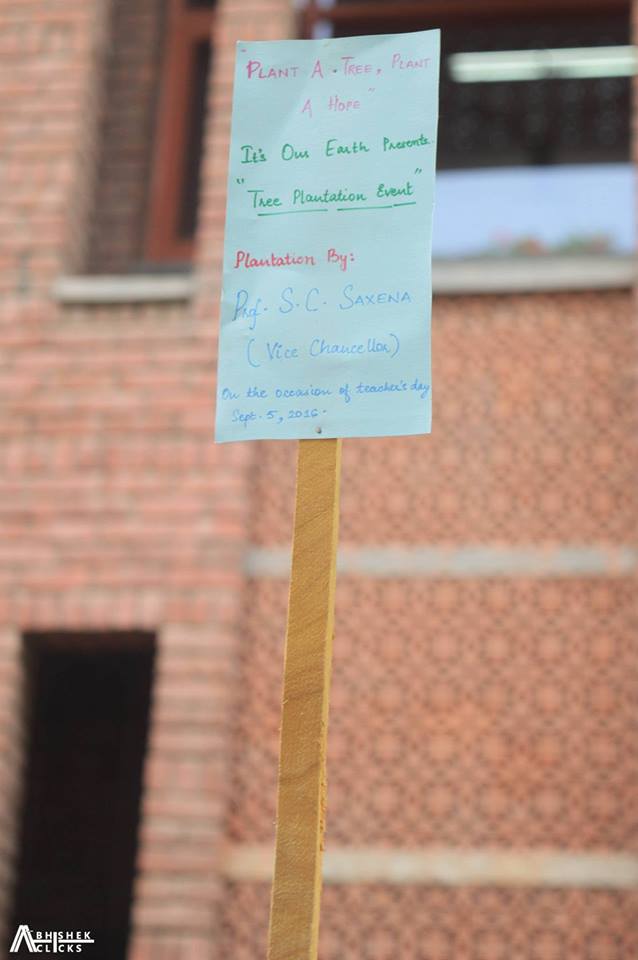 "Plant A Tree, Plant
A Hope"
It's Our Earth Presents
"Tree Plantation Event"
Plantation By:
Prof. S.C. Saxena
(Vice Chancellor)
On the occasion of teacher's day
Sept. 5, 2016.
ABHISHEK
CLICKS